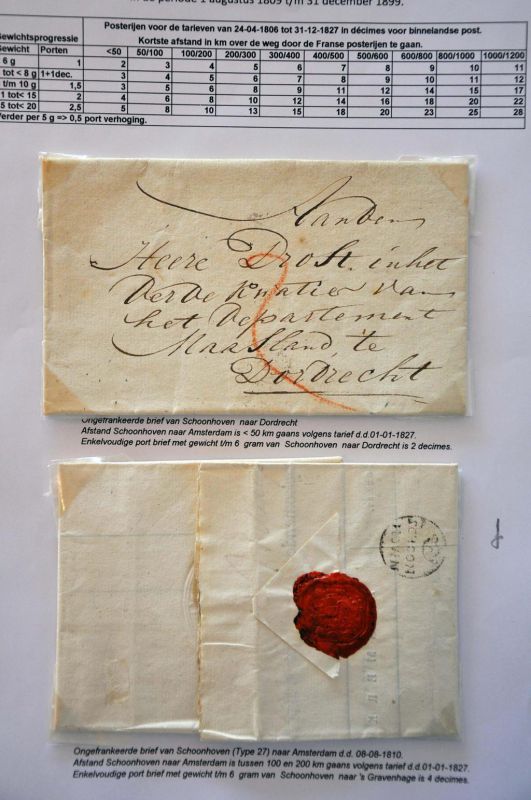 in de periode 1 augustus 1809 t/m 31 december 1899.
Gewichtsprogressie Posterijen voor de tarieven van 24-04-1806 tot 31-12-1827 in décimes voor binnenlandse post.
Kortste afstand in km over de weg door de Franse posterijen te gaan.
Gewicht Porten <50 50/100 100/200 200/300 300/400 400/500 500/600 600/800 800/1000 1000/1200
6 g 1 2 3 4 5 6 7 8 9 10 11
tot< 8 g 1+1dec. 3 4 5 6 7 8 9 10 11 12
t/m 10 g 1,5 3 5 6 8 9 11 12 14 15 17
1 tot< 15 2 4 6 8 10 12 14 16 18 20 22
5 tot< 20 2,5 5 8 10 13 15 18 20 23 25 28
Verder per 5 g => 0,5 port verhoging.
Aanden
Heere Drost. inhet
Derde Kwatier van
het Departement
Maasland te
Dordrecht
Ongefrankeerde brief van Schoonhoven naar Dordrecht
Afstand Schoonhoven naar Amsterdam is < 50 km gaans volgens tarief d.d.01-01-1827.
Enkelvoudige port brief met gewicht t/m 6 gram van Schoonhoven naar Dordrecht is 2 decimes.
Ongefrankeerde brief van Schoonhoven (Type 27) naar Amsterdam d.d. 08-08-1810.
Afstand Schoonhoven naar Amsterdam is tussen 100 en 200 km gaans volgens tarief d.d.01-01-1827.
Enkelvoudige port brief met gewicht t/m 6 gram van Schoonhoven naar 's Gravenhage is 4 decimes.